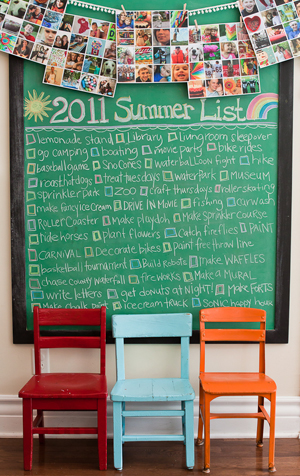 2011 Summer List
lemonade stand Library living room sleepover
go camping boating movie party bike rides
baseball game Sno Cones water balloon fight hike
roast hot dogs treat tuesdays Water PARK Museum
sprinkler park ZOO craft thursdays roller skating
make fancy ice cream DRIVE IN MOVIE fishing car wash
Roller Coaster Make playdoh make Sprinkler Course
ride horses plant flowers Catch fireflies PAINT
CARNIVAL Decorate bikes paint free throw line
basketball tournament Build Robots make WAFFLES
chase county waterfall fireworks Make a MURAL
write letters get donuts at NIGHT! Make FORTS
Make chalk ice cream truck SONIC happy hour